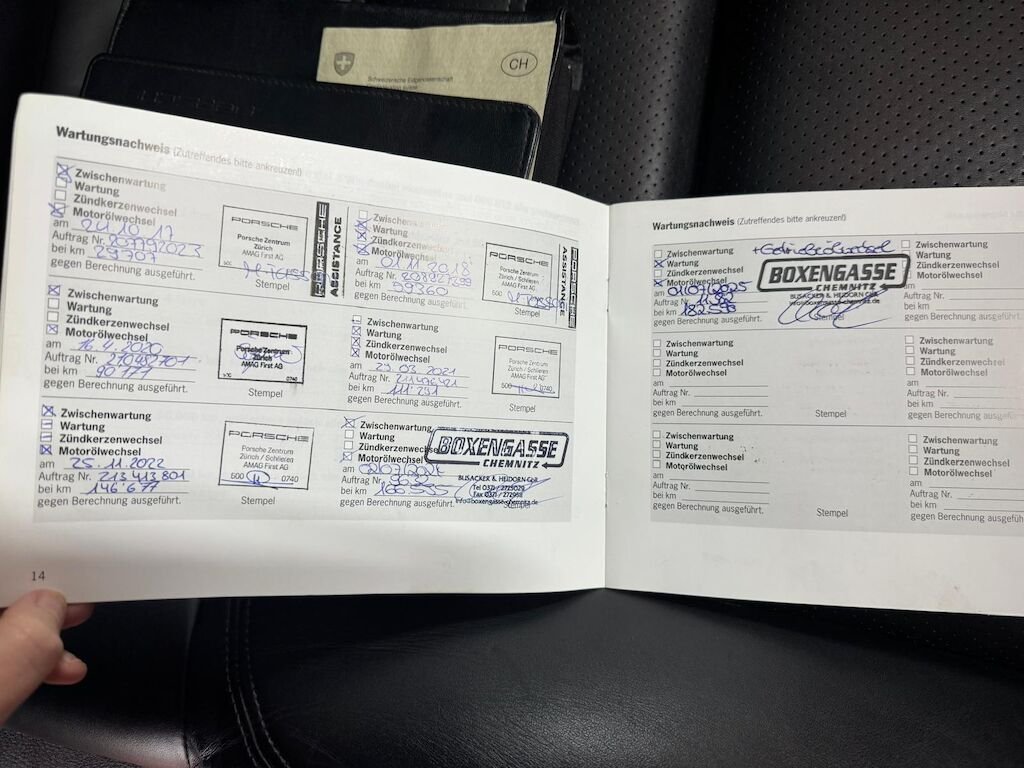 CH
Schweizerische Eidgenossenschaft
Wartungsnachweis (Zutreffendes bitte ankreuzen!)
Zwischenwartung
Wartung
Zündkerzenwechsel
Motorölwechsel
am 24.10.17
Auftrag Nr. 207792023
bei km 29707
gegen Berechnung ausgeführt.
PORSCHE
Porsche Zentrum
Zürich
AMAG First AG
Stempel
PORSCHE
ASSISTANCE
Zwischenwartung
Wartung
Zündkerzenwechsel
Motorölwechsel
am 01.11.2018
Auftrag Nr.
bei km 59360
gegen Berechnung ausgeführt.
PORSCHE
Porsche Zentrum
Zürich / Schlieren
AMAG First AG
500
Stempel
PORSCHE
ASSISTANCE
Zwischenwartung
Wartung
Zündkerzenwechsel
Motorölwechsel
am 16.4.2020
Auftrag Nr. 210487707
bei km 90'777
gegen Berechnung ausgeführt.
PORSCHE
Porsche Zentrum
Zürich
AMAG First AG
0740
Stempel
Zwischenwartung
Wartung
Zündkerzenwechsel
Motorölwechsel
am 29.03.2021
Auftrag Nr.
bei km 111'291
gegen Berechnung ausgeführt.
PORSCHE
Porsche Zentrum
Zürich / Schlieren
AMAG First AG
500 0740
Stempel
Zwischenwartung
Wartung
Zündkerzenwechsel
Motorölwechsel
am 25.11.2022
Auftrag Nr. 213 413 801
bei km 146'677
gegen Berechnung ausgeführt.
PORSCHE
Porsche Zentrum
Zürich / Schlieren
AMAG First AG
500 0740
Stempel
Zwischenwartung
Wartung
Zündkerzenwechsel
Motorölwechsel
am 02/07/2024
Auftrag Nr. 9632
bei km 166.535
gegen Berechnung ausgeführt.
BOXENGASSE
CHEMNITZ
BUSACKER & HEIDORN GbR
Tel 0371 / 2725029
Fax 0371 / 272958
info@boxengasse-chemnitz.de
Stempel
14
Wartungsnachweis (Zutreffendes bitte ankreuzen!)
+Getriebeölwechsel
Zwischenwartung
Wartung
Zündkerzenwechsel
Motorölwechsel
am 01/07/2025
Auftrag Nr. 1182
bei km 182.595
gegen Berechnung ausgeführt.
BOXENGASSE
CHEMNITZ
BUSACKER & HEIDORN GbR
info@boxengasse-chemnitz.de
Stempel
Zwischenwartung
Wartung
Zündkerzenwechsel
Motorölwechsel
am
Auftrag Nr.
bei km
gegen Berechnung ausgeführt.
Zwischenwartung
Wartung
Zündkerzenwechsel
Motorölwechsel
am
Auftrag Nr.
bei km
gegen Berechnung ausgeführt.
Stempel
Zwischenwartung
Wartung
Zündkerzenwechsel
Motorölwechsel
am
Auftrag Nr.
bei km
gegen Berechnung ausgeführt.
Zwischenwartung
Wartung
Zündkerzenwechsel
Motorölwechsel
am
Auftrag Nr.
bei km
gegen Berechnung ausgeführt.
Stempel
Zwischenwartung
Wartung
Zündkerzenwechsel
Motorölwechsel
am
Auftrag Nr.
bei km
gegen Berechnung ausgeführt.